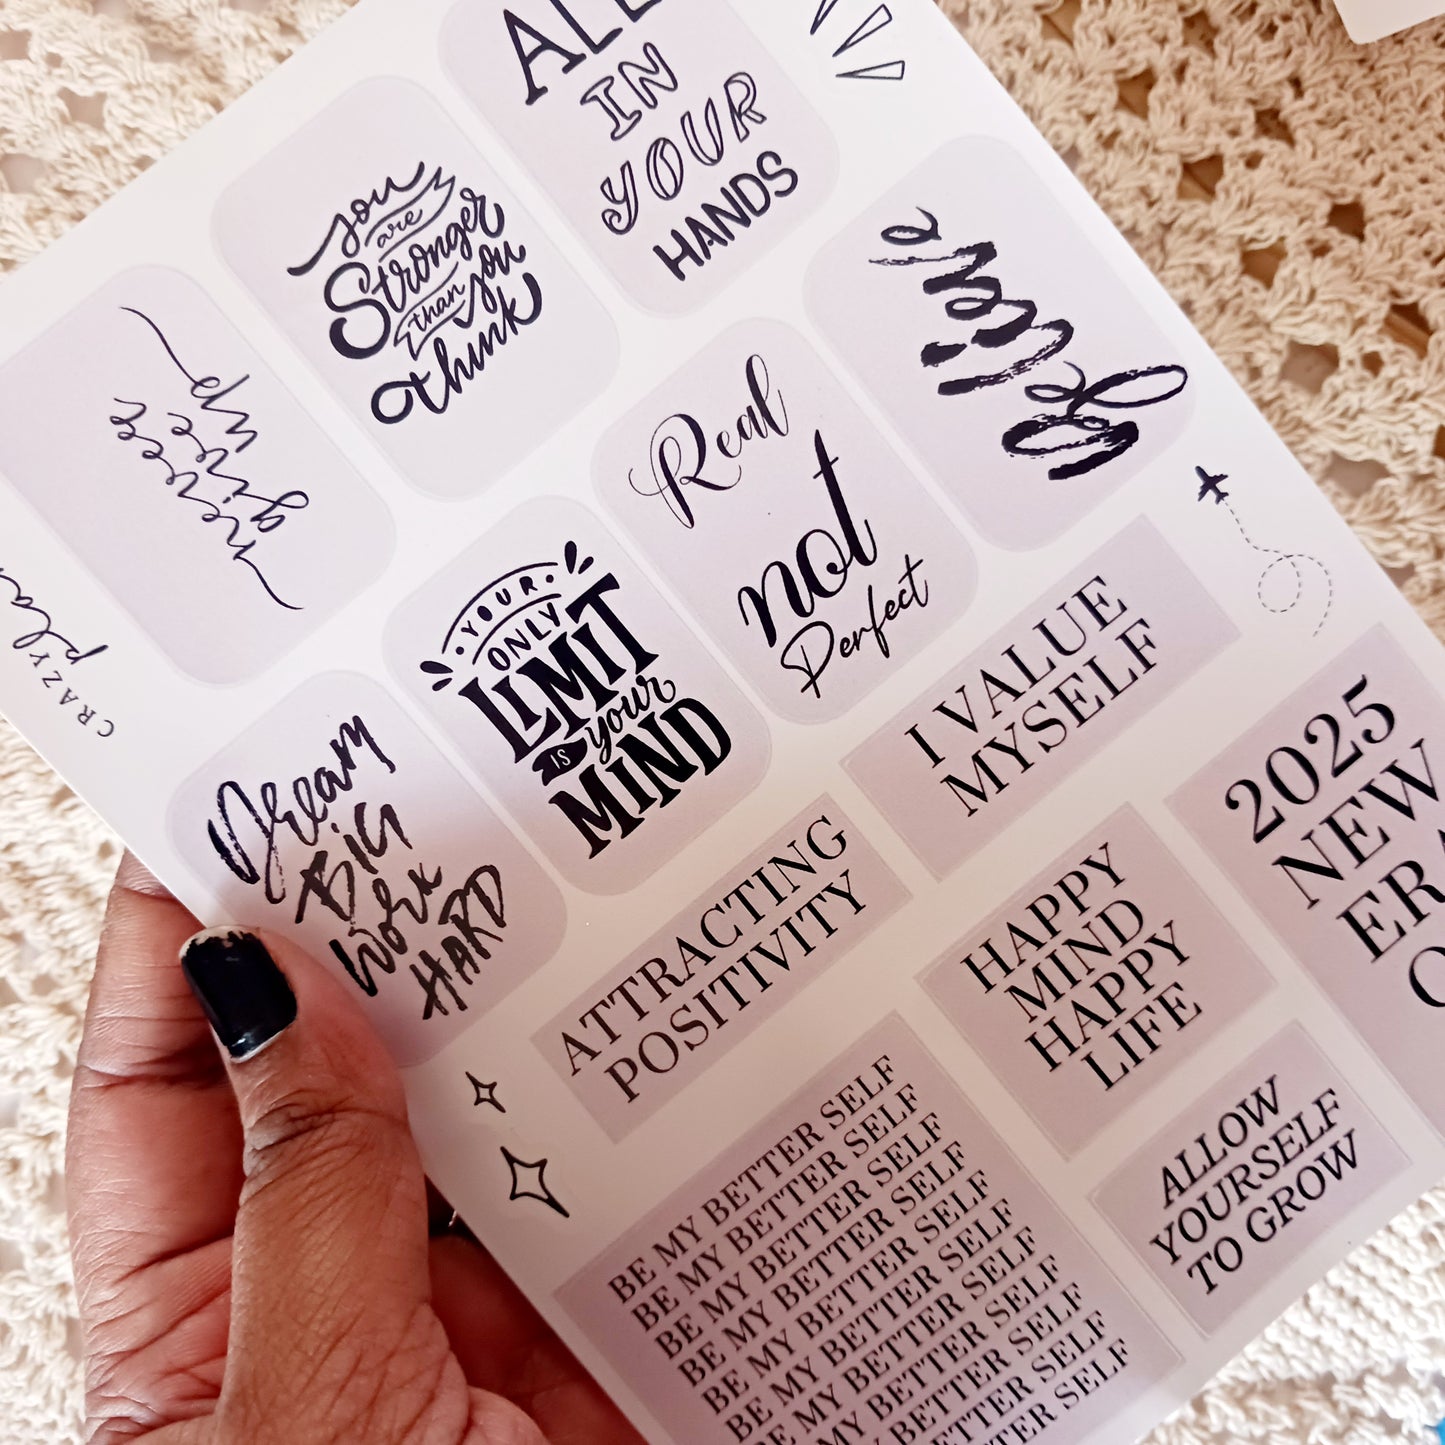 ALL
IN
YOUR
HANDS
you
are
Stronger
than you
think
Believe
never
give
up
Real
not
Perfect
YOUR
ONLY
LIMIT
IS your
MIND
Dream
BIG
Work
HARD
CRAZY
I VALUE
MYSELF
2025
NEW
ATTRACTING
POSITIVITY
HAPPY
MIND
HAPPY
LIFE
ALLOW
YOURSELF
TO GROW
BE MY BETTER SELF
BE MY BETTER SELF
BE MY BETTER SELF
BE MY BETTER SELF
BE MY BETTER SELF
BE MY BETTER SELF
BE MY BETTER SELF
BE MY BETTER SELF
MY BETTER SELF
BETTER SELF
BETTER SELF
TER SELF